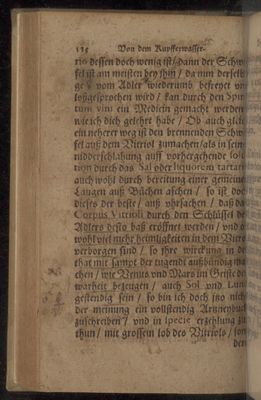 126 Von dem Kupfferwasser
rio dessen doch wenig ist / dann der Schw
fel ist am meisten bey ihm / da nun derselb
ge vom Adler wiederumb befreyet vn
loßgesprochen wird / kan durch den Spir
tum vini ein Medicin gemacht werden
wie ich dich gelehrt habe / Ob auch gleich
ein neherer weg ist den brennenden Schw
fel auß dem Vitriol zumachen / als in sein
nidderschlahung auff vorhergehende solu
tion durch das Sal oder liquorem tartari
auch wohl durch bereitung einer gemeinen
Laugen auß Büchen aschen / so ist doch
dieses der beste / auß vhrsachen / daß da
Corpus Vitrioli durch den Schlüssel de
Adlers desto baß eröffnet werden / vnd o
wohl viel mehr heimligkeiten in dem Vitrio
verborgen sind / so ihre wirckung in de
that mit sampt der tugendt außbündig ma
chen / wie Venus vnd Mars im Geiste de
warheit bezeugen / auch Sol vnd Lun
gestendig sein / so bin ich doch itzo nicht
der meinung ein vollstendig Artzneybuch
zuschreiben / vnd in specie erzehlung zu
thun / mit grossem lob des Vitriols / son
dern